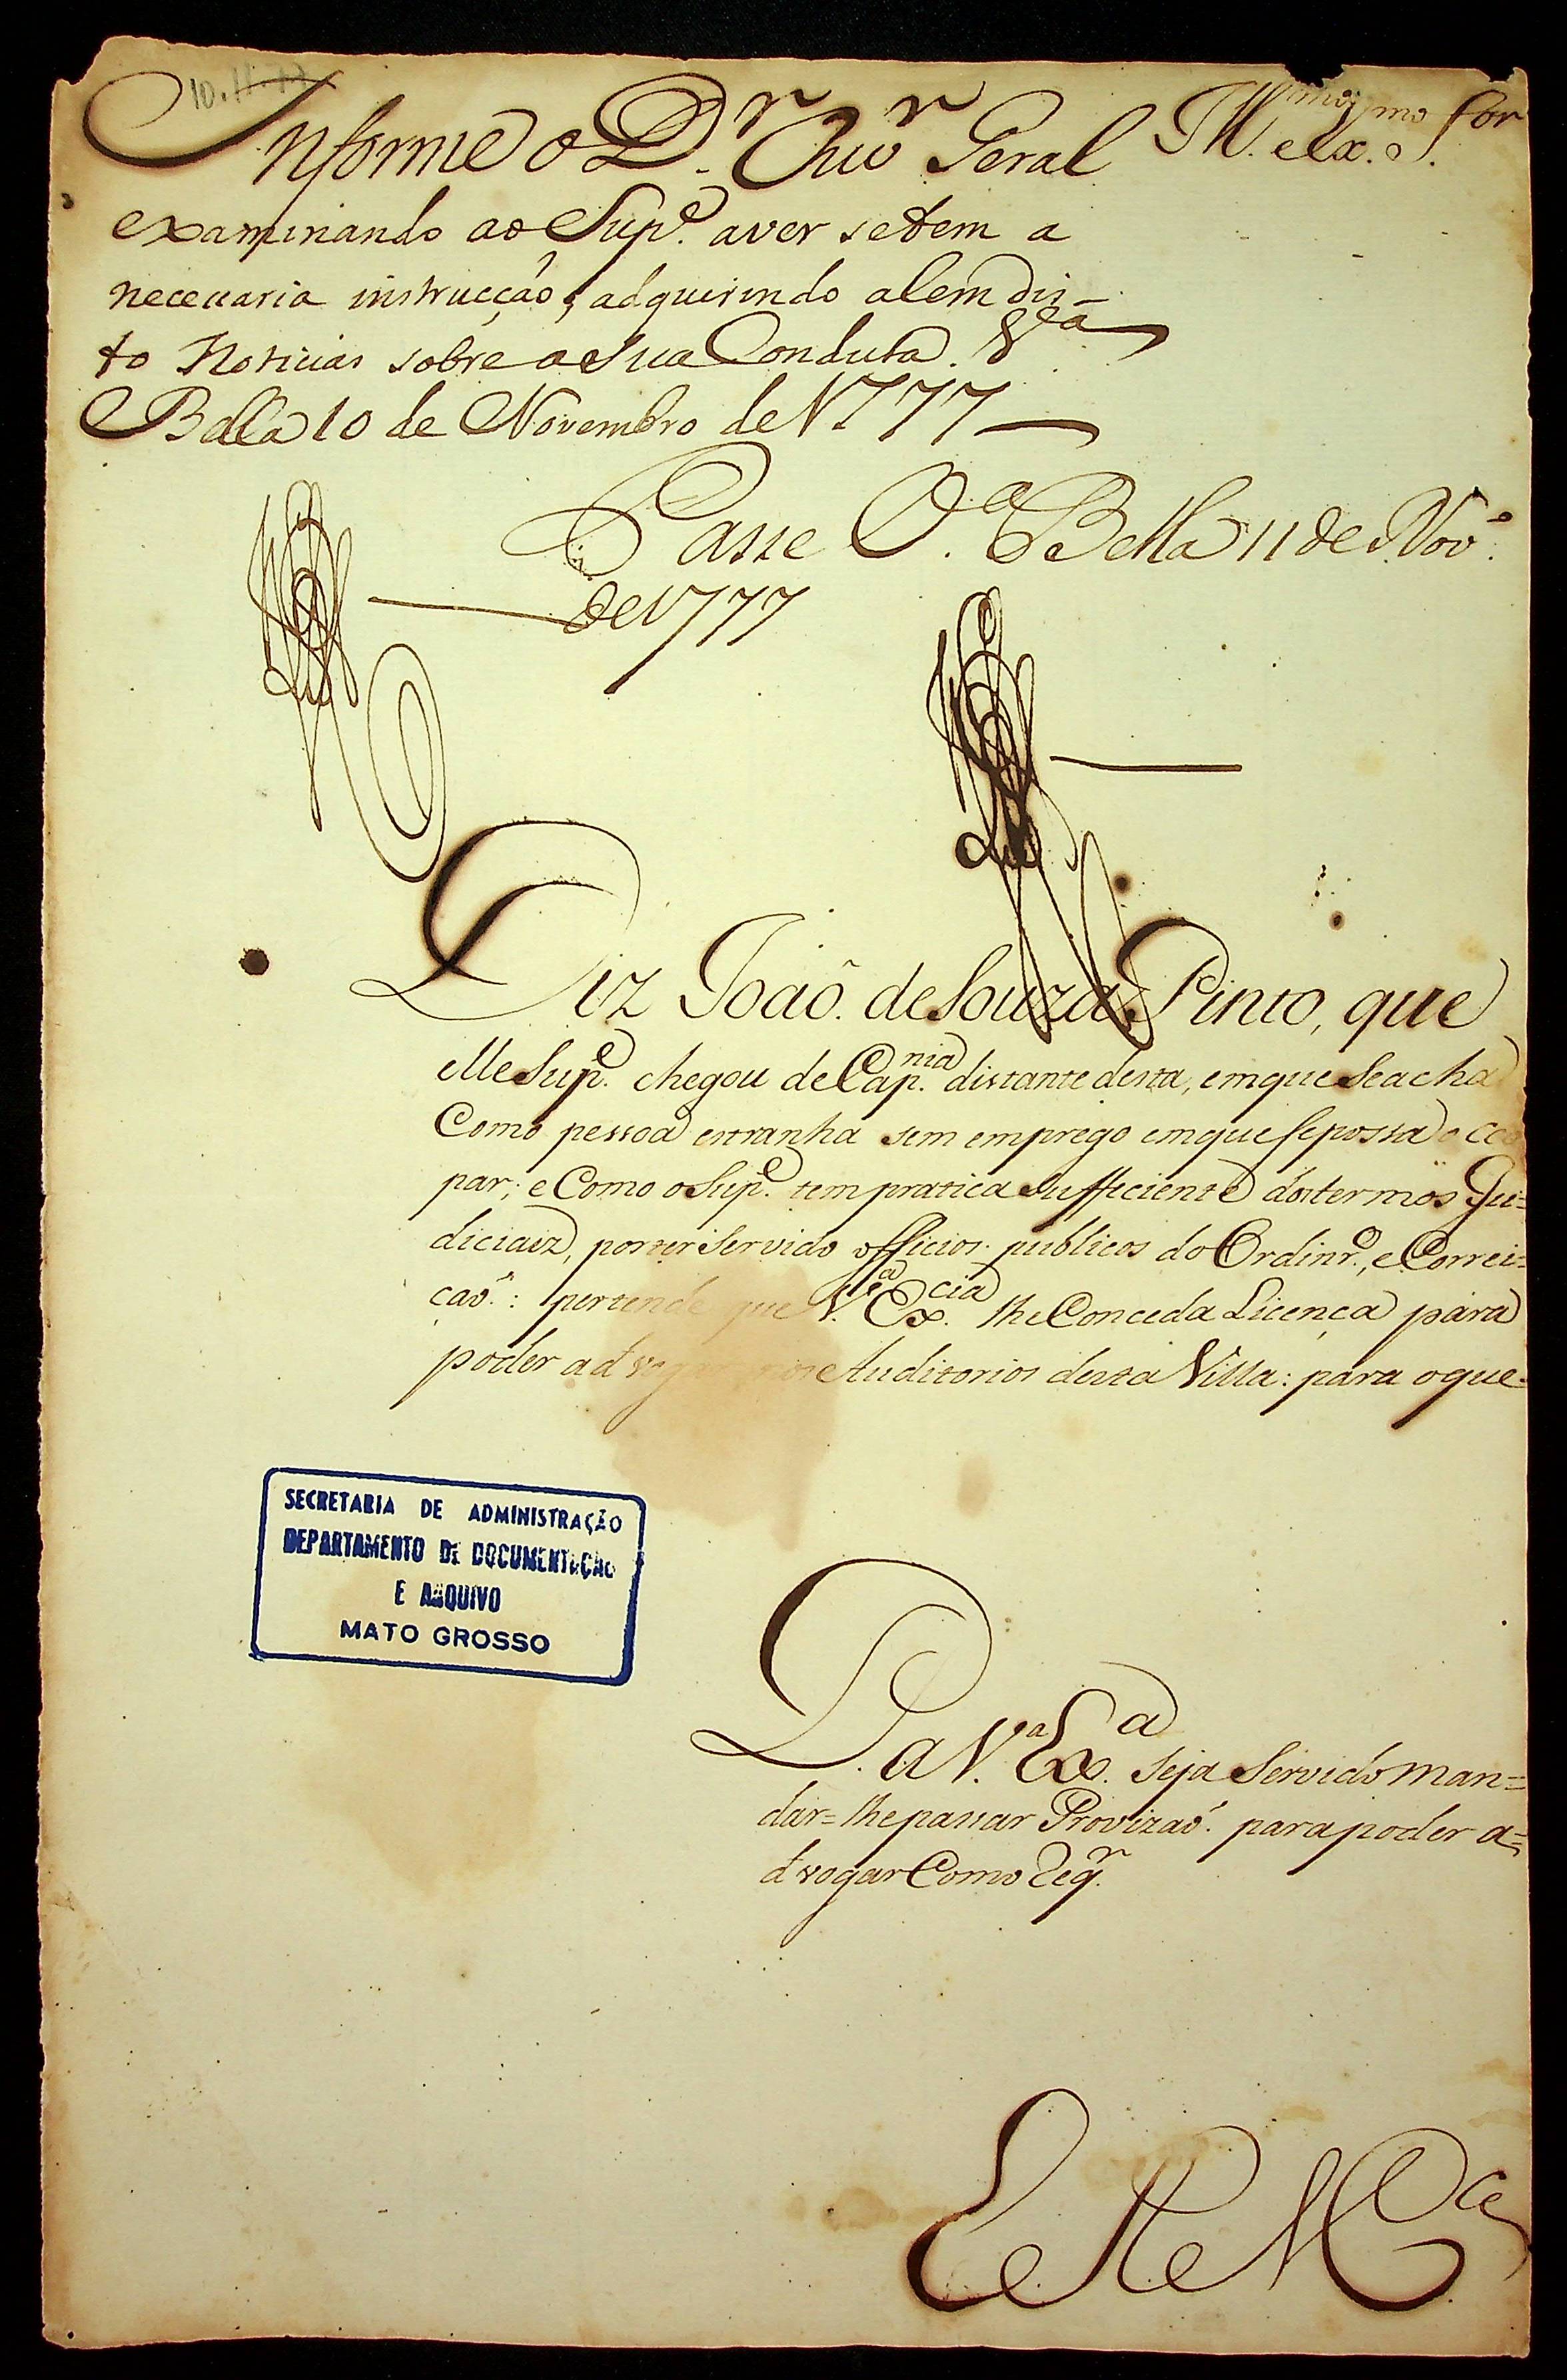 10.11.77
Informe o D.r Ouv.r Geral
Ill.mo e Ex.mo S.or
examinando ao Sup.e aver setem a
necessaria instrucção, adquirindo alem dis-
to Noticias sobre a sua Conduta. V.a
Bella 10 de Novembro de 1777
Passe V.a Bella 11 de Nov.o
de 1777
Diz João de Souza Pinto, que
elle Sup.e chegou de Cap.nia distante desta, em que Se acha
Como pessoa estranha sem emprego em que se possa occu
par; e Como o Sup.e tem pratica sufficiente dos termos Ju=
diciaiz, por ter Servido officios publicos do Ordinr.o, e Correi=
çaõ: pertende que V.a Ex.cia lhe Conceda Licença para
poder advogar nos Auditorios desta Villa: para o que
P. a V.a Ex.a seja Servido man=
dar=lhe passar Provizaõ para poder a=
dvogar Como Req.r
E R M.ce
SECRETARIA DE ADMINISTRAÇÃO
DEPARTAMENTO DE DOCUMENTAÇÃO
E ARQUIVO
MATO GROSSO